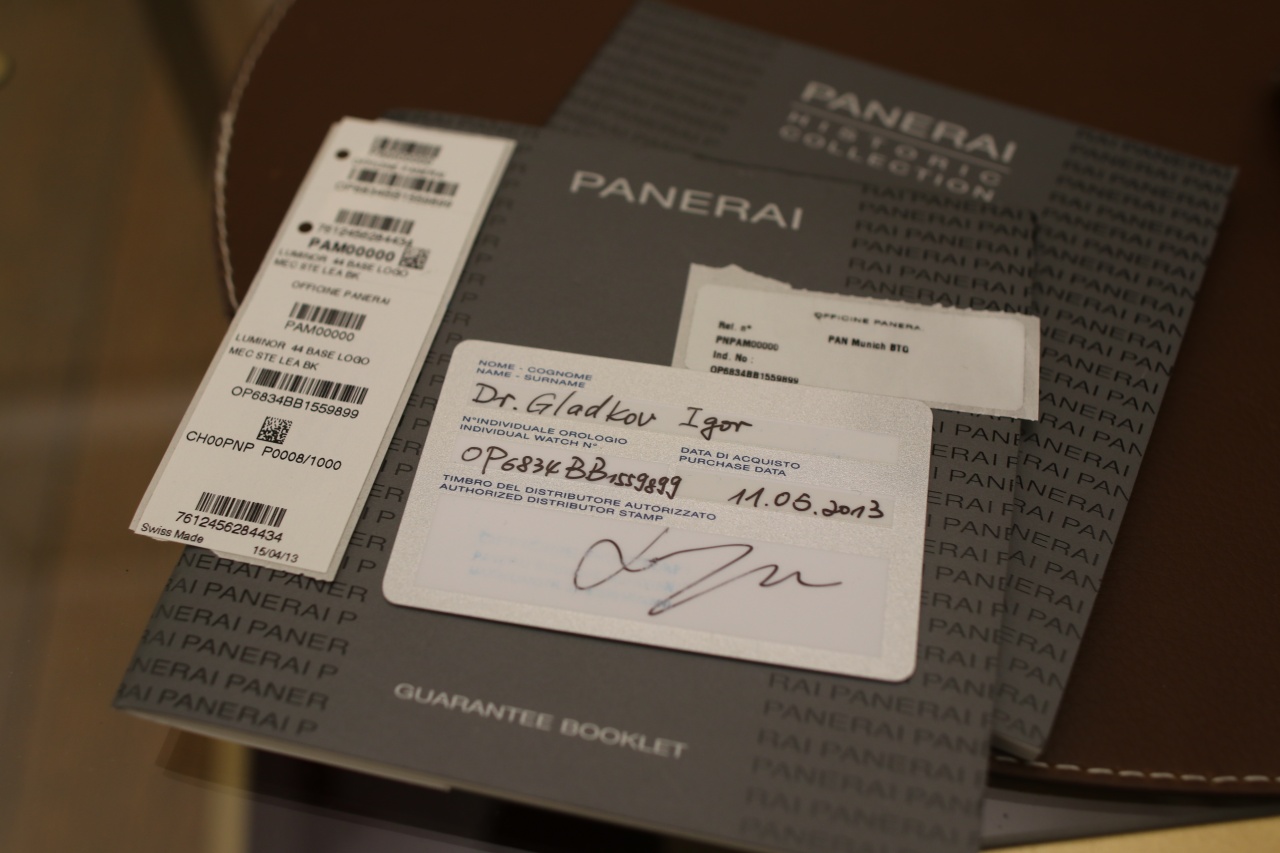 PANERAI
HISTORIC
COLLECTION
PANERAI
OFFICINE PANERAI
OP6834BB1559899
7612456284434
PAM00000
LUMINOR 44 BASE LOGO
MEC STE LEA BK
OFFICINE PANERAI
PAM00000
LUMINOR 44 BASE LOGO
MEC STE LEA BK
OP6834BB1559899
CH00PNP P0008/1000
7612456284434
Swiss Made 15/04/13
OFFICINE PANERAI
Ref. n°
PNPAM00000 PAN Munich BTQ
Ind. No :
OP6834BB1559899
NOME - COGNOME
NAME - SURNAME
Dr. Gladkov Igor
N°INDIVIDUALE OROLOGIO
INDIVIDUAL WATCH N°
OP6834BB1559899
DATA DI ACQUISTO
PURCHASE DATA
11.05.2013
TIMBRO DEL DISTRIBUTORE AUTORIZZATO
AUTHORIZED DISTRIBUTOR STAMP
RAI PANERAI P
NERAI PANER
RAI PANERAI P
NERAI PANER
RAI PANERAI P
GUARANTEE BOOKLET